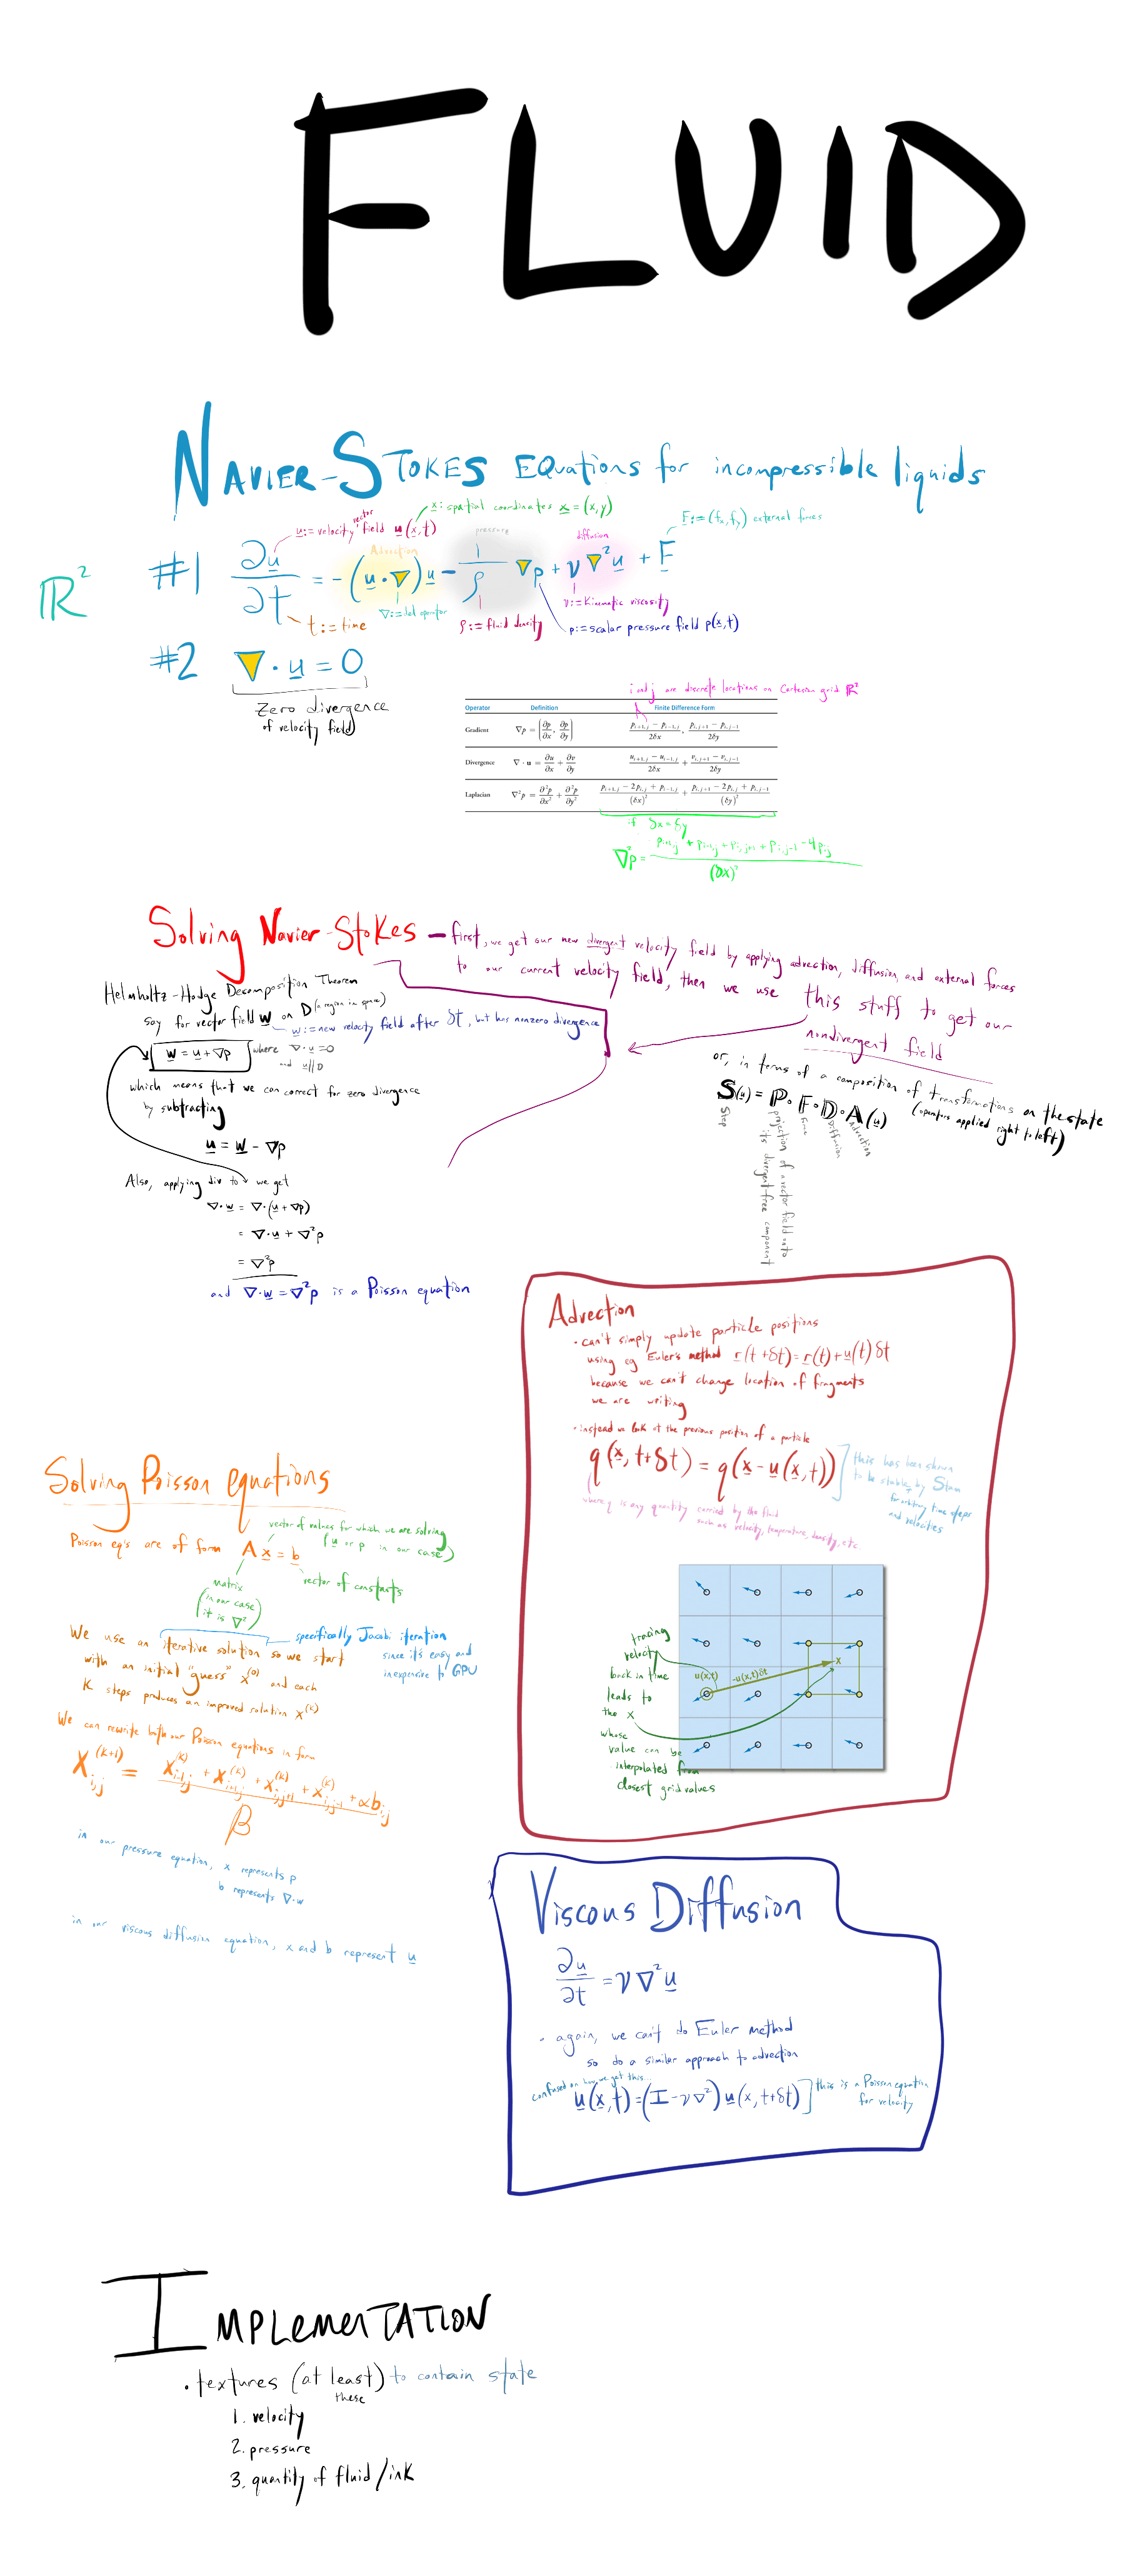 FLUID
NAVIER-STOKES EQuations for incompressible liquids
x: spatial coordinates x = (x,y)
vector
u:= velocity field u(x,t)
F:= (fx, fy) external forces
pressure
diffusion
Advection
ℝ²
#1 ∂u/∂t = -(u·∇)u - 1/ρ ∇p + ν∇²u + F
∇:=del operator
ν:= kinematic viscosity
t:= time
ρ:= fluid density
p:=scalar pressure field p(x,t)
#2 ∇·u = 0
Zero divergence
of velocity field
i and j are discrete locations on Cartesian grid ℝ²
Operator Definition Finite Difference Form
Gradient ∇p = (∂p/∂x, ∂p/∂y) (p_{i+1,j} − p_{i−1,j})/2δx, (p_{i,j+1} − p_{i,j−1})/2δy
Divergence ∇·u = ∂u/∂x + ∂v/∂y (u_{i+1,j} − u_{i−1,j})/2δx + (v_{i,j+1} − v_{i,j−1})/2δy
Laplacian ∇²p = ∂²p/∂x² + ∂²p/∂y² (p_{i+1,j} − 2p_{i,j} + p_{i−1,j})/(δx)² + (p_{i,j+1} − 2p_{i,j} + p_{i,j−1})/(δy)²
if δx=δy
∇²p = (p_{i+1,j} + p_{i-1,j} + p_{i,j+1} + p_{i,j-1} - 4p_{i,j})/(δx)²
Solving Navier-Stokes – first, we get our new divergent velocity field by applying advection, diffusion, and external forces
to our current velocity field, then we use this stuff to get our
nondivergent field
Helmholtz-Hodge Decomposition Theorem
say for vector field w on D (a region in space)
w:=new velocity field after δt, but has nonzero divergence
w = u+∇p where ∇·u=0
and u∥D
which means that we can correct for zero divergence
by subtracting
u = w - ∇p
Also, applying div to we get
∇·w = ∇·(u+∇p)
= ∇·u + ∇²p
= ∇²p
and ∇·w = ∇²p is a Poisson equation
or, in terms of a composition of transformations on the state
(operators applied right to left)
S(u) = P∘F∘D∘A(u)
Step
projection of a vector field onto
its divergent-free component
Force
Diffusion
Advection
Advection
• can't simply update particle positions
using eg Euler's method r(t+δt)=r(t)+u(t)δt
because we can't change location of fragments
we are writing
• instead we look at the previous position of a particle
q(x,t+δt) = q(x-u(x,t))
this has been shown
to be stable by Stam
for arbitrary time steps
and velocities
where q is any quantity carried by the fluid
such as velocity, temperature, density, etc
tracing
velocity
back in time
leads to
the x
whose
value can be
interpolated from
closest grid values
u(x,t)
-u(x,t)δt
x
Solving Poisson equations
Poisson eq's are of form A x = b
vector of values for which we are solving
(u or p in our case)
matrix
(in our case
it is ∇²)
vector of constants
We use an iterative solution so we start
with an initial "guess" x^(0) and each
K steps produces an improved solution x^(k)
specifically Jacobi iteration
since it's easy and
inexpensive to GPU
We can rewrite both our Poisson equations in form
x_{i,j}^(k+1) = (x_{i-1,j}^(k) + x_{i+1,j}^(k) + x_{i,j+1}^(k) + x_{i,j-1}^(k) + αb_{i,j})/β
in our pressure equation, x represents p
b represents ∇·w
in our viscous diffusion equation, x and b represent u
Viscous Diffusion
∂u/∂t = ν∇²u
• again, we can't do Euler method
so do a similar approach to advection
confused on how we get this...
u(x,t)=(I-ν∇²)u(x,t+δt)
this is a Poisson equation
for velocity
IMPLemenTATION
• textures (at least) to contain state
these
1. velocity
2. pressure
3. quantity of fluid/ink